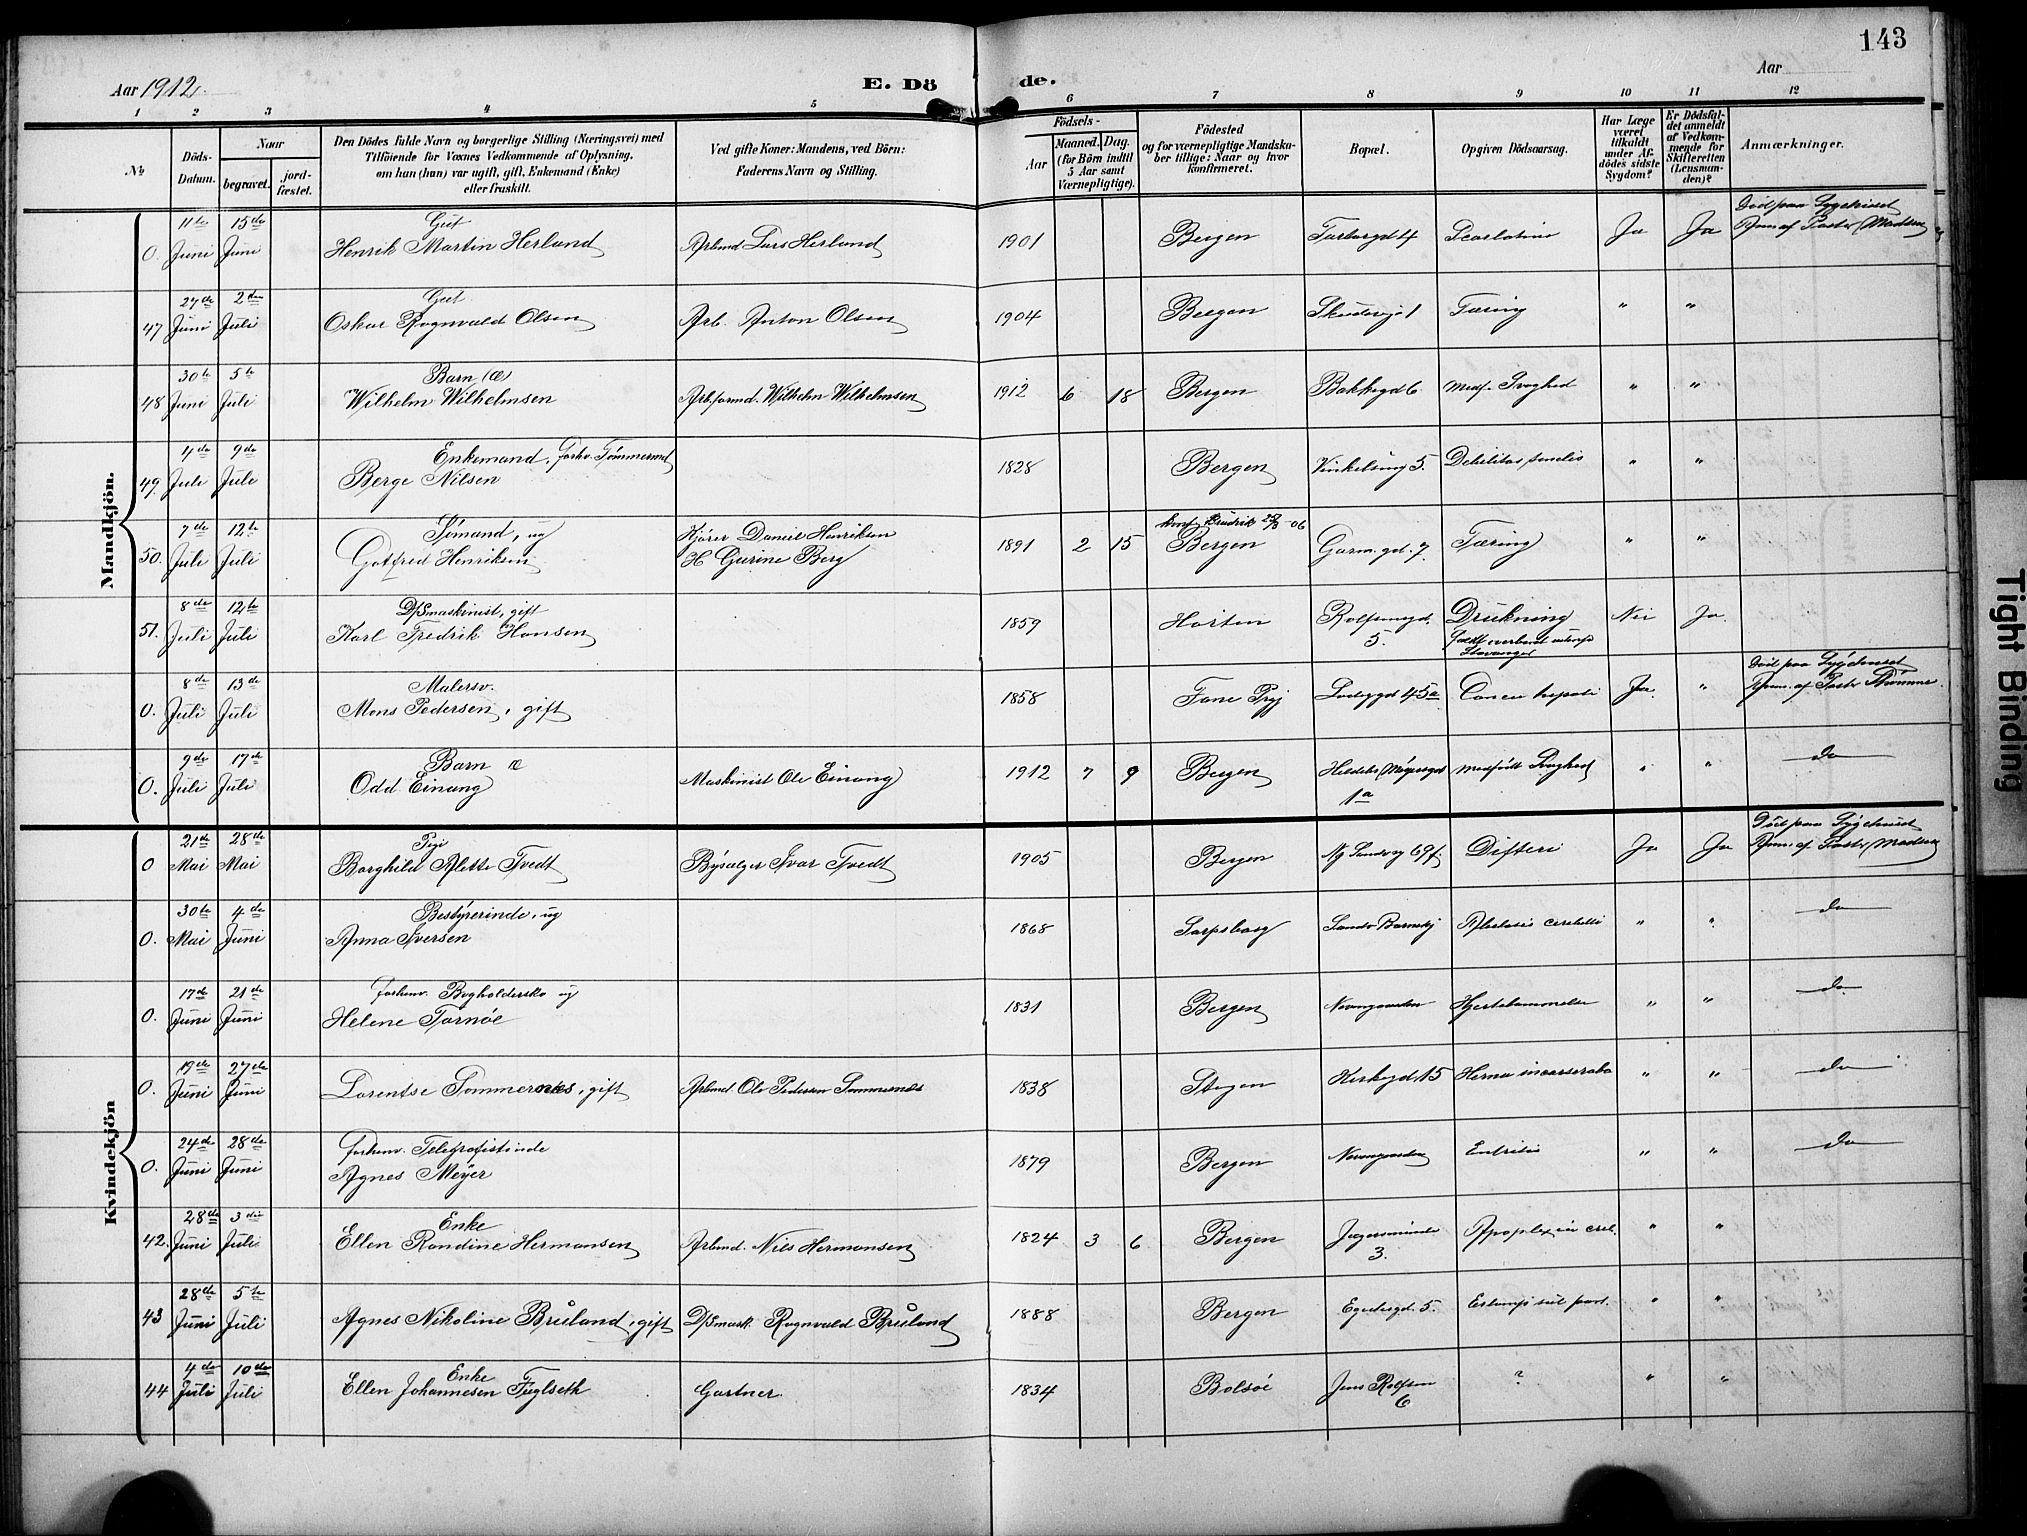 143
Aar 1912. E. Dö de. Aar
1 2 3 4 5 6 7 8 9 10 11 12
No Döds-Datum. Naar begravet. jord-fæstet. Den Dödes fulde Navn og borgerlige Stilling (Næringsvei) med Tilföiende for Voxnes Vedkommende af Oplysning, om han (hun) var ugift, gift, Enkemand (Enke) eller fraskilt. Ved gifte Koner: Mandens, ved Börn: Faderens Navn og Stilling. Födsels- Aar Maaned. Dag. (for Börn indtil 5 Aar samt Værnepligtige). Födested og for værnepligtige Mandskaber tillige: Naar og hvor konfirmeret. Bopæl. Opgiven Dödsaarsag. Har Læge været tilkaldt under Afdödes sidste Sygdom? Er Dödsfaldet anmeldt af Vedkommende for Skifteretten (Lensmanden)? Anmærkninger.
Mandkjön.
0. 11te Juni 15de Juni Gut Henrik Martin Herland Arbmd Lars Herland 1901 Bergen 4 Scarlatina Ja Ja Död paa Sygehuset Anm. af Pastor Madsen
47 27de Juni 2den Juli Gut Oskar Rognvald Olsen Arb. Anton Olsen 1904 Bergen 1 Tæring " "
48 30te Juni 5te Juli Barn Æ Wilhelm Wilhelmsen Arb.formd. Wilhelm Wilhelmsen 1912 6 18 Bergen Bakkegd 6 Medf. Svaghed " "
49. 4de Juli 9de Juli Enkemand, forhv. Tømmermd Berge Nilsen 1828 Bergen 5. Debilitas senilis " "
50. 7de Juli 12te Juli Sømand, ug Gotfred Henriksen Kjører Daniel Henriksen H Gurine Berg 1891 2 15 Bergen 7 Tæring " "
51. 8de Juli 12te Juli D/Smaskinist, gift Karl Fredrik Hansen 1859 Horten 5. Drukning Faldt overbord Stavanger Nei Ja.
0. 8de Juli 13de Juli Malersv. Mons Pedersen, gift 1858 Fane Prgj 45a Cancer hepatis Ja. " Död paa Sygehuset Anm. af Pastor
0. 9de Juli 17de Juli Barn Æ Odd Einang Maskinist Ole Einang 1912 7 9 Bergen 1a Medfödt Svaghed " " do
Kvindekjön
0 21de Mai 28de Mai Pige Borghild Alette Tvedt Bysælger Ivar Tvedt 1905 Bergen Difteri Ja Ja Död paa Sygehuset Anm. af Pastor Madsen
0. 30te Mai 4de Juni Bestyrerinde, ug Anna Iversen 1868 Sarpsborg " " do
0. 17de Juni 21de Juni forhenv. Bogholderske ug Helene Tornöe 1831 Bergen Hjertelammelse " " do
0. 19de Juni 27de Juni Lorentse Sommernes, gift Arbmd. Ole Pedersen Sommernes 1838 Stegen Kirkegd. 15 " " do
0. 24de Juni 28de Juni forhenv. Telegrafistinde Agnes Meyer 1879 Bergen " " do
42. 28de Juni 3die Juli Enke Ellen Randine Hermansen Arbmd. Nils Hermansen 1824 3 6 Bergen 3. Apoplexia cereb. " "
43 28de Juni 5te Juli Agnes Nikoline Bruland, gift D/Smask. Rognvald Bruland 1888 Bergen 5. " "
44 4de Juli 10de Juli Enke Ellen Johannesen Fuglseth Gartner. 1834 Bolsöe Jens Rolfsen 6 ? " "
Tight Binding